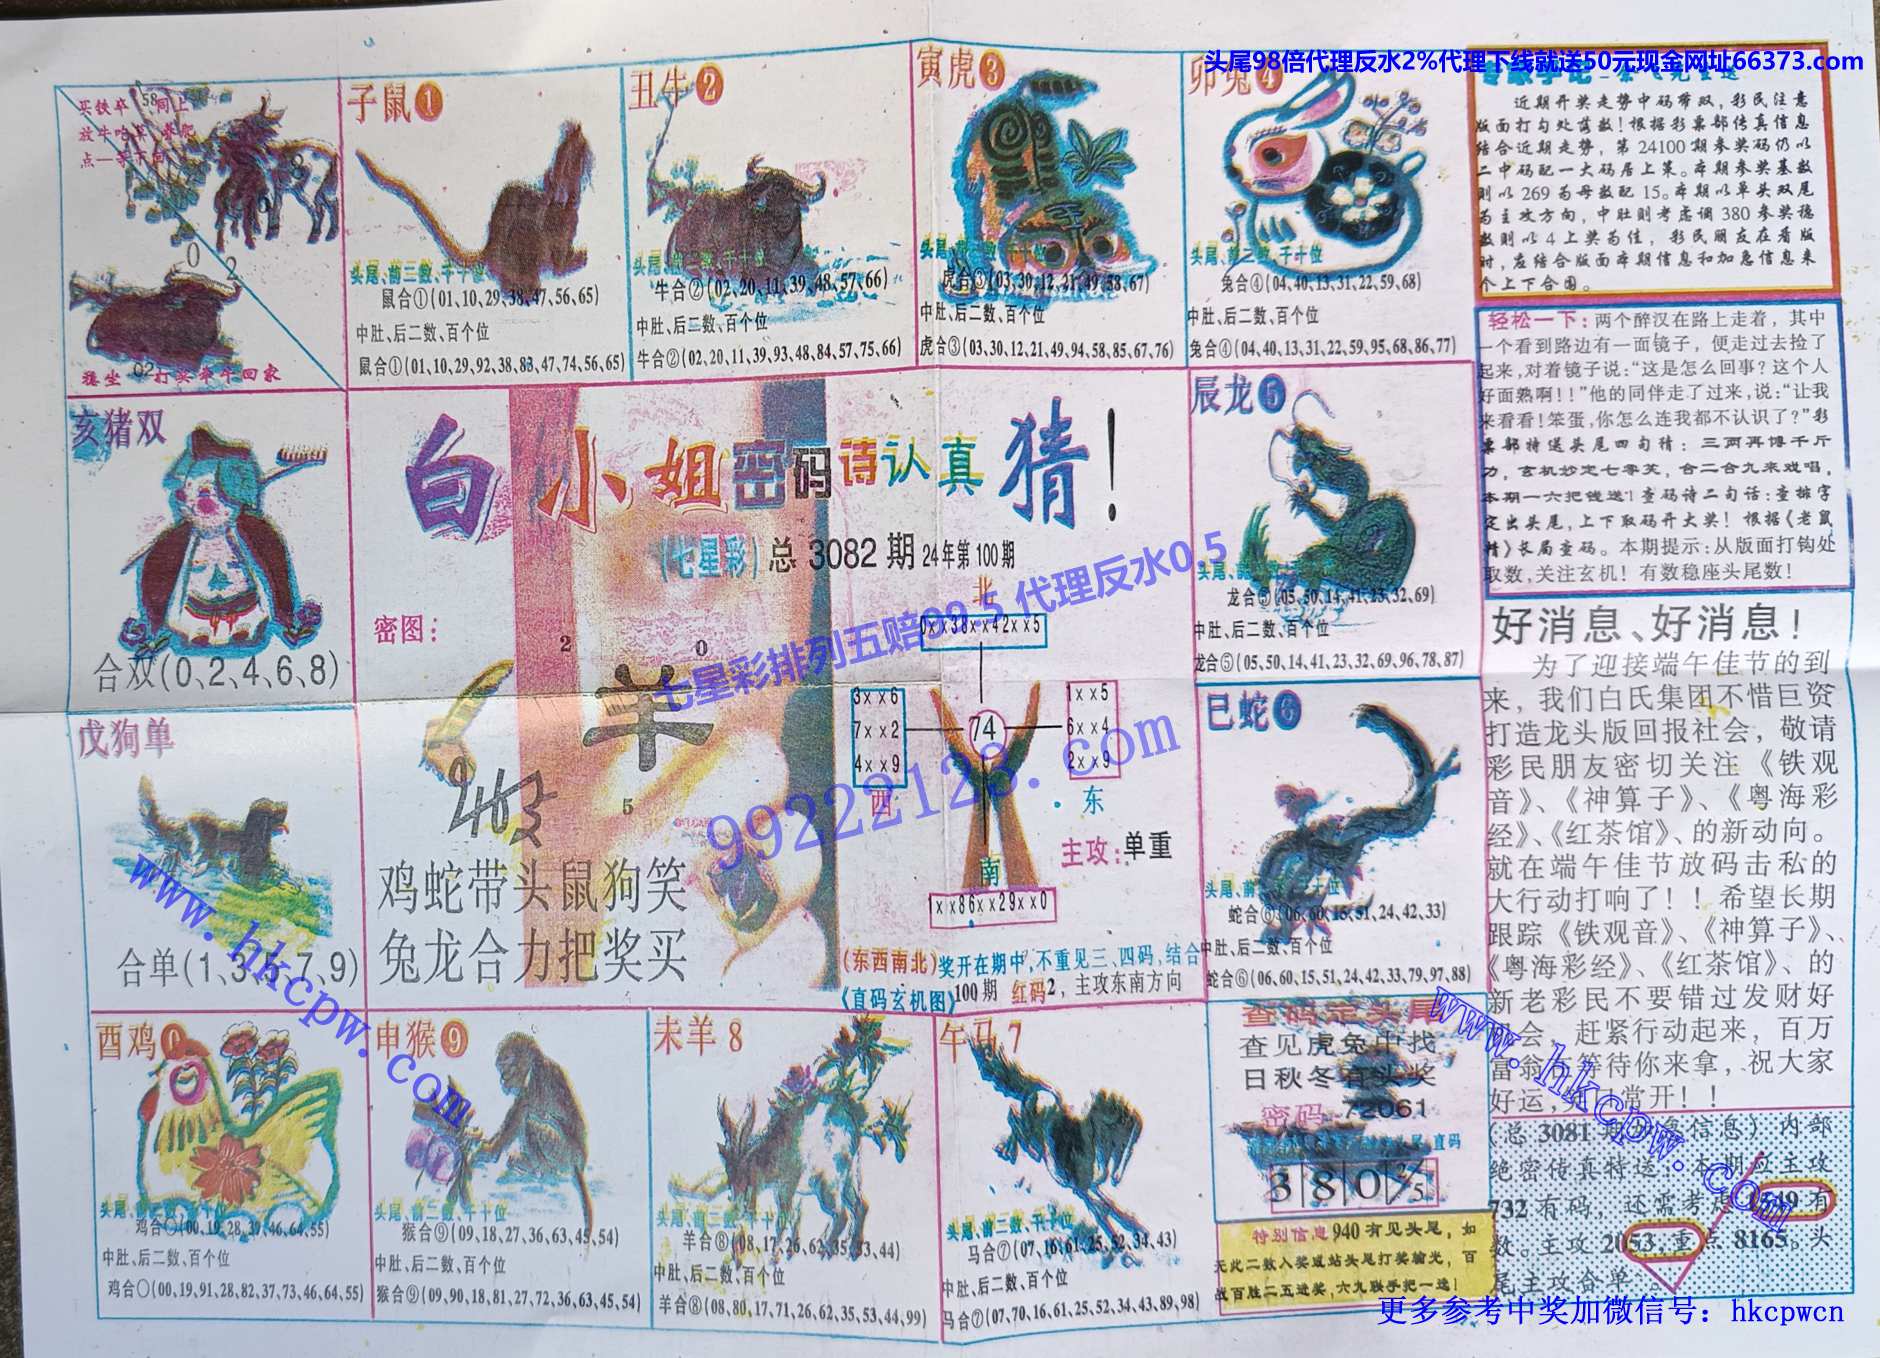 头尾98倍代理反水2%代理下线就送50元现金网址66373.com
买铁卒 同上
点一等下回
58
0 2
02
打奖牵牛回家
子鼠①
头尾、前三数、千十位
鼠合①(01,10,29,38,47,56,65)
中肚、后二数、百个位
鼠合①(01,10,29,92,38,83,47,74,56,65)
丑牛②
头尾、前三数、千十位
牛合②(02,20,11,39,48,57,66)
中肚、后二数、百个位
牛合②(02,20,11,39,93,48,84,57,75,66)
寅虎③
头尾、前三数、千十位
虎合③(03,30,12,21,49,58,67)
中肚、后二数、百个位
虎合③(03,30,12,21,49,94,58,85,67,76)
卯兔④
头尾、前三数、千十位
兔合④(04,40,13,31,22,59,68)
中肚、后二数、百个位
兔合④(04,40,13,31,22,59,95,68,86,77)
近期开奖走势中码带双，彩民注意
版面打勾处落数！根据彩票部传真信息
结合近期走势，第24100期参奖码仍以
二中码配一大码居上策。本期参奖基数
则以269为母数配15。本期以单头双尾
为主攻方向，中肚则考虑调380参奖稳
数则以4上奖为佳，彩民朋友在看版
时，应结合版面本期信息和加急信息来
个上下合围。
轻松一下：两个醉汉在路上走着，其中
一个看到路边有一面镜子，便走过去捡了
起来,对着镜子说:“这是怎么回事？这个人
好面熟啊！！”他的同伴走了过来,说:“让我
来看看！笨蛋,你怎么连我都不认识了？”彩
票部特送头尾四句猜：三两再博千斤
力，玄机妙定七零笑，合二合九来戏唱，
本期一六把钱送！查码诗二句话:查排字
定出头尾,上下取码开大奖！根据《老鼠
精》长局查码。本期提示:从版面打钩处
取数,关注玄机！有数稳座头尾数！
亥猪双
合双(0、2、4、6、8)
白小姐密码诗认真猜！
(七星彩)总3082期24年第100期
密图：
2 0
羊
5
262
鸡蛇带头鼠狗笑
兔龙合力把奖买
北
0××38××42××5
3××6
7××2
4××9
74
1××5
6××4
2××9
西
东
主攻:单重
南
1××86××29××0
(东西南北)奖开在期中,不重见三、四码,结合
《直码玄机图》100期 红码2，主攻东南方向
七星彩排列五赔99.5 代理反水0.5
99222123.com
辰龙⑤
头尾、前三数、千十位
龙合⑤(05,50,14,41,23,32,69)
中肚、后二数、百个位
龙合⑤(05,50,14,41,23,32,69,96,78,87)
巳蛇⑥
头尾、前三数、千十位
蛇合⑥(06,60,15,51,24,42,33)
中肚、后二数、百个位
蛇合⑥(06,60,15,51,24,42,33,79,97,88)
好消息、好消息！
为了迎接端午佳节的到
来，我们白氏集团不惜巨资
打造龙头版回报社会，敬请
彩民朋友密切关注《铁观
音》、《神算子》、《粤海彩
经》、《红茶馆》、的新动向。
就在端午佳节放码击私的
大行动打响了！！希望长期
跟踪《铁观音》、《神算子》、
《粤海彩经》、《红茶馆》、的
新老彩民不要错过发财好
会，赶紧行动起来，百万
富翁在等待你来拿，祝大家
好运,奖常开！！
戊狗单
合单(1、3、5、7、9)
www.hkcpw.com
酉鸡0
头尾、前三数、千十位
鸡合〇(00,19,28,37,46,64,55)
中肚、后二数、百个位
鸡合〇(00,19,91,28,82,37,73,46,64,55)
申猴⑨
头尾、前三数、千十位
猴合⑨(09,18,27,36,63,45,54)
中肚、后二数、百个位
猴合⑨(09,90,18,81,27,72,36,63,45,54)
未羊8
头尾、前三数、千十位
羊合⑧(08,17,26,62,35,53,44)
中肚、后二数、百个位
羊合⑧(08,80,17,71,26,62,35,53,44,99)
午马7
头尾、前三数、千十位
马合⑦(07,16,61,25,52,34,43)
中肚、后二数、百个位
马合⑦(07,70,16,61,25,52,34,43,89,98)
查码定头尾
查见虎兔中找
日秋冬有头奖
密码:72061
头尾 直码
3 8 0 2/5
特别信息940有见头尾，如
无此二数入奖或站头尾打奖输光，百
战百胜二五进奖,六九联手把一送！
www.hkcpw.com
(总3081期信息)内部
绝密传真特送：本期应主攻
732有码，还需考虑1549有
数。主攻2053,重点8165。头
尾主攻合单
更多参考中奖加微信号：hkcpwcn